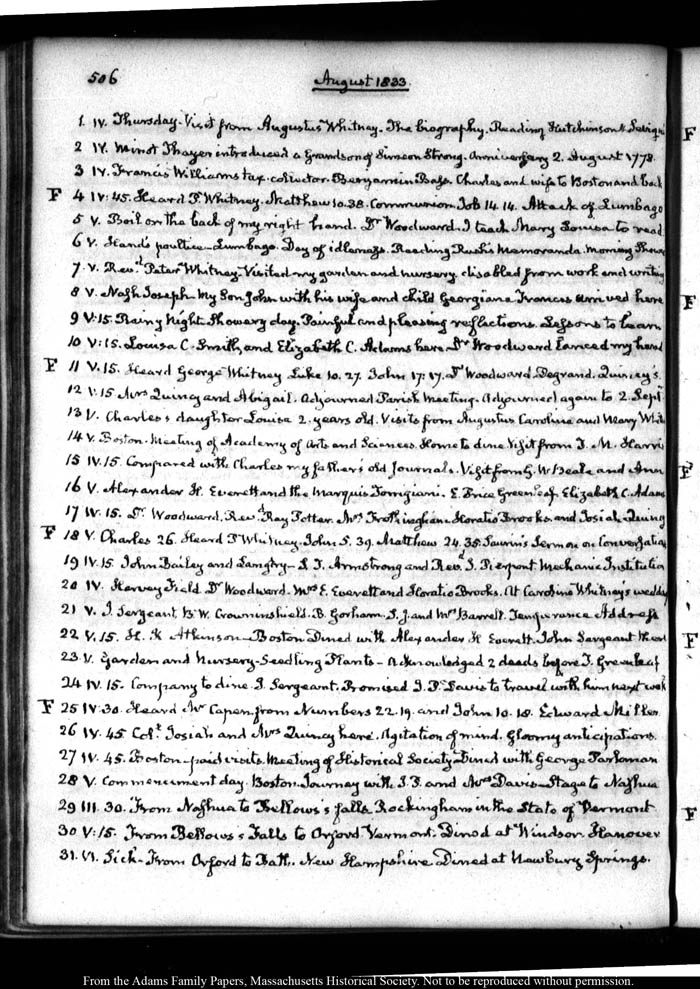 506 August 1833.
1. IV. Thursday. Visit from Augustus Whitney. The biography. Reading Hutchinson &
2 IV. Minot Thayer introduced a Grandson of Simeon Strong. Anniversary 2. August 1778.
3 IV. Francis Williams tax-collector. Benjamin Bass. Charles and wife to Boston and back
F 4 IV:45. Heard P. Whitney. Matthew 10.38. Communion. Job 14.14. Attack of Lumbago
5 V. Boil on the back of my right hand. Dr Woodward. I teach Mary Louisa to read
6 V. Hand's poultice—Lumbago. Day of idleness. Reading Rush's Memoranda. morning Show
7. V. Revd. Peter Whitney. Visited my garden and nursery. disabled from work and writing
8 V. Nash Joseph. My Son John with his wife and child Georgiana Frances arrived here
9 V:15. Rainy Night. Showery day. Painful and pleasing reflections. Lessons to learn
10 V:15. Louisa C. Smith, and Elizabeth C. Adams here. Dr Woodward lanced my hand
F 11 V.15. Heard George Whitney Luke 10.27. John 17.17. Dr Woodward. Degrand. Quincy's.
12 V.15 Mrs Quincy and Abigail. Adjourned Parish Meeting. Adjourned again to 2. Septr.
13 V. Charles's daughter Louisa 2. years old. Visits from Augustus Caroline and Mary Whit
14 V. Boston. Meeting of Academy of Arts and Sciences. Home to dine. Visit from T. M. Harris
15 IV.15. Compared with Charles my father's old Journals. Visit from G. W. Beale and Ann
16 V. Alexander H. Everett and the Marquis Torrigiani. E. Price Greenleaf. Elizabeth C. Adams
17 IV.15. Dr Woodward. Revd. Ray Potter. Mrs Frothingham. Horatio Brooks and Josiah Quincy
F 18 V. Charles 26. Heard P Whitney. John 5.39. Matthew 24.35. Saurin's Sermon on Conversation
19 IV.15. John Bailey and Langtry—S. T. Armstrong and Revd. J. Pierpont Mechanic Institution
20 IV. Harvey Field. Dr Woodward. Mrs E. Everett and Horatio Brooks. At Caroline Whitney's wedding
21 V. J. Sergeant, B. W. Crowninshield. B. Gorham. S. J. and Mrs Barrell. Temperance Address
22 V.15. H. K Atkinson—Boston. Dined with Alexander H. Everett. John Sargeant there
23 V. Garden and Nursery—Seedling Plants—Acknowledged 2 deeds before T. Greenleaf
24 IV.15. Company to dine. J. Sergeant. Promised I. P. Davis to travel with him next week
F 25 IV:30. Heard Mr Capen, from Numbers 22.19. and John 10.18. Edward Miller
26 IV.45 Colt. Josiah and Mrs Quincy here. Agitation of mind. Gloomy anticipations.
27 IV.45. Boston—paid visits. Meeting of Historical Society. Dined with George Parkman
28 V. Commencement day. Boston. Journey with I. P. and Mrs Davis—Stage to Nashua
29 III.30. From Nashua to Bellows's falls. Rockingham in the State of Vermont
30 V:15. From Bellows's Falls to Orford Vermont. Dined at Windsor. Hanover
31. VI. Sick—From Orford to Bath. New Hampshire. Dined at Newbury Springs.
F
F
F
F
F
From the Adams Family Papers, Massachusetts Historical Society. Not to be reproduced without permission.